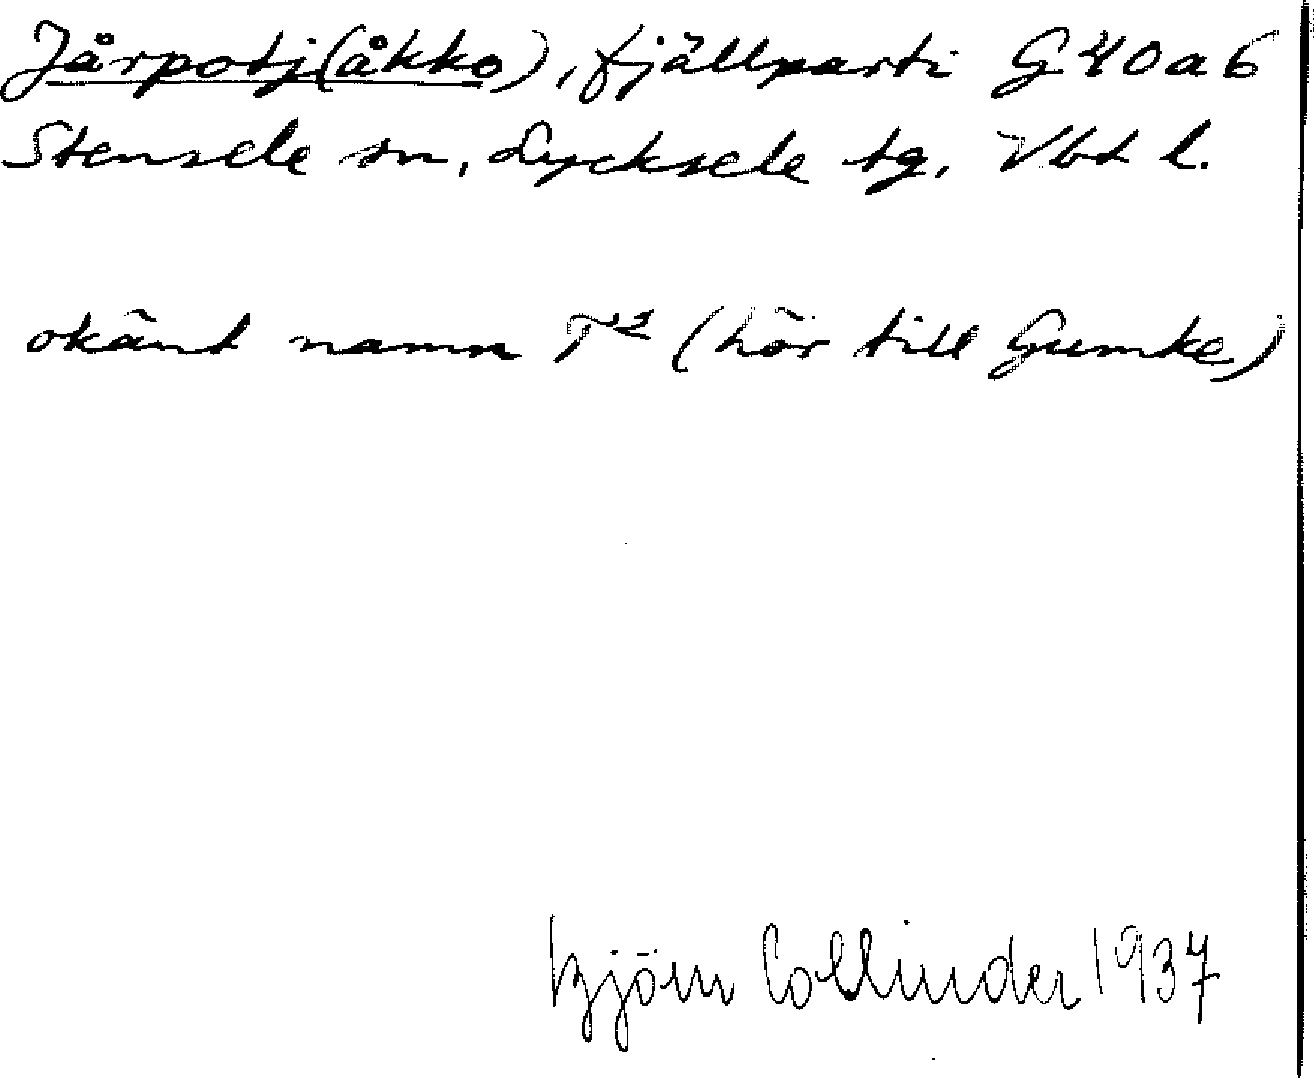 Jårpotj(åkko), fjällparti G 40 a 6
Stensele sn, Lycksele tg, Vbt l.
okänt namn T² (hör till Gumke)
Björn Collinder 1937